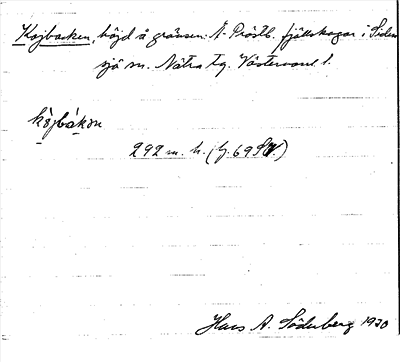 Kojbacken, höjd å gränsen Å- Pröstb. fjällskogar i Siden
sjö sn. Nätra tg. Västernorrl. l.
kòjbákⱥn
292 m. h. (bj. 69 SV.)
Hans A. Söderberg 1930